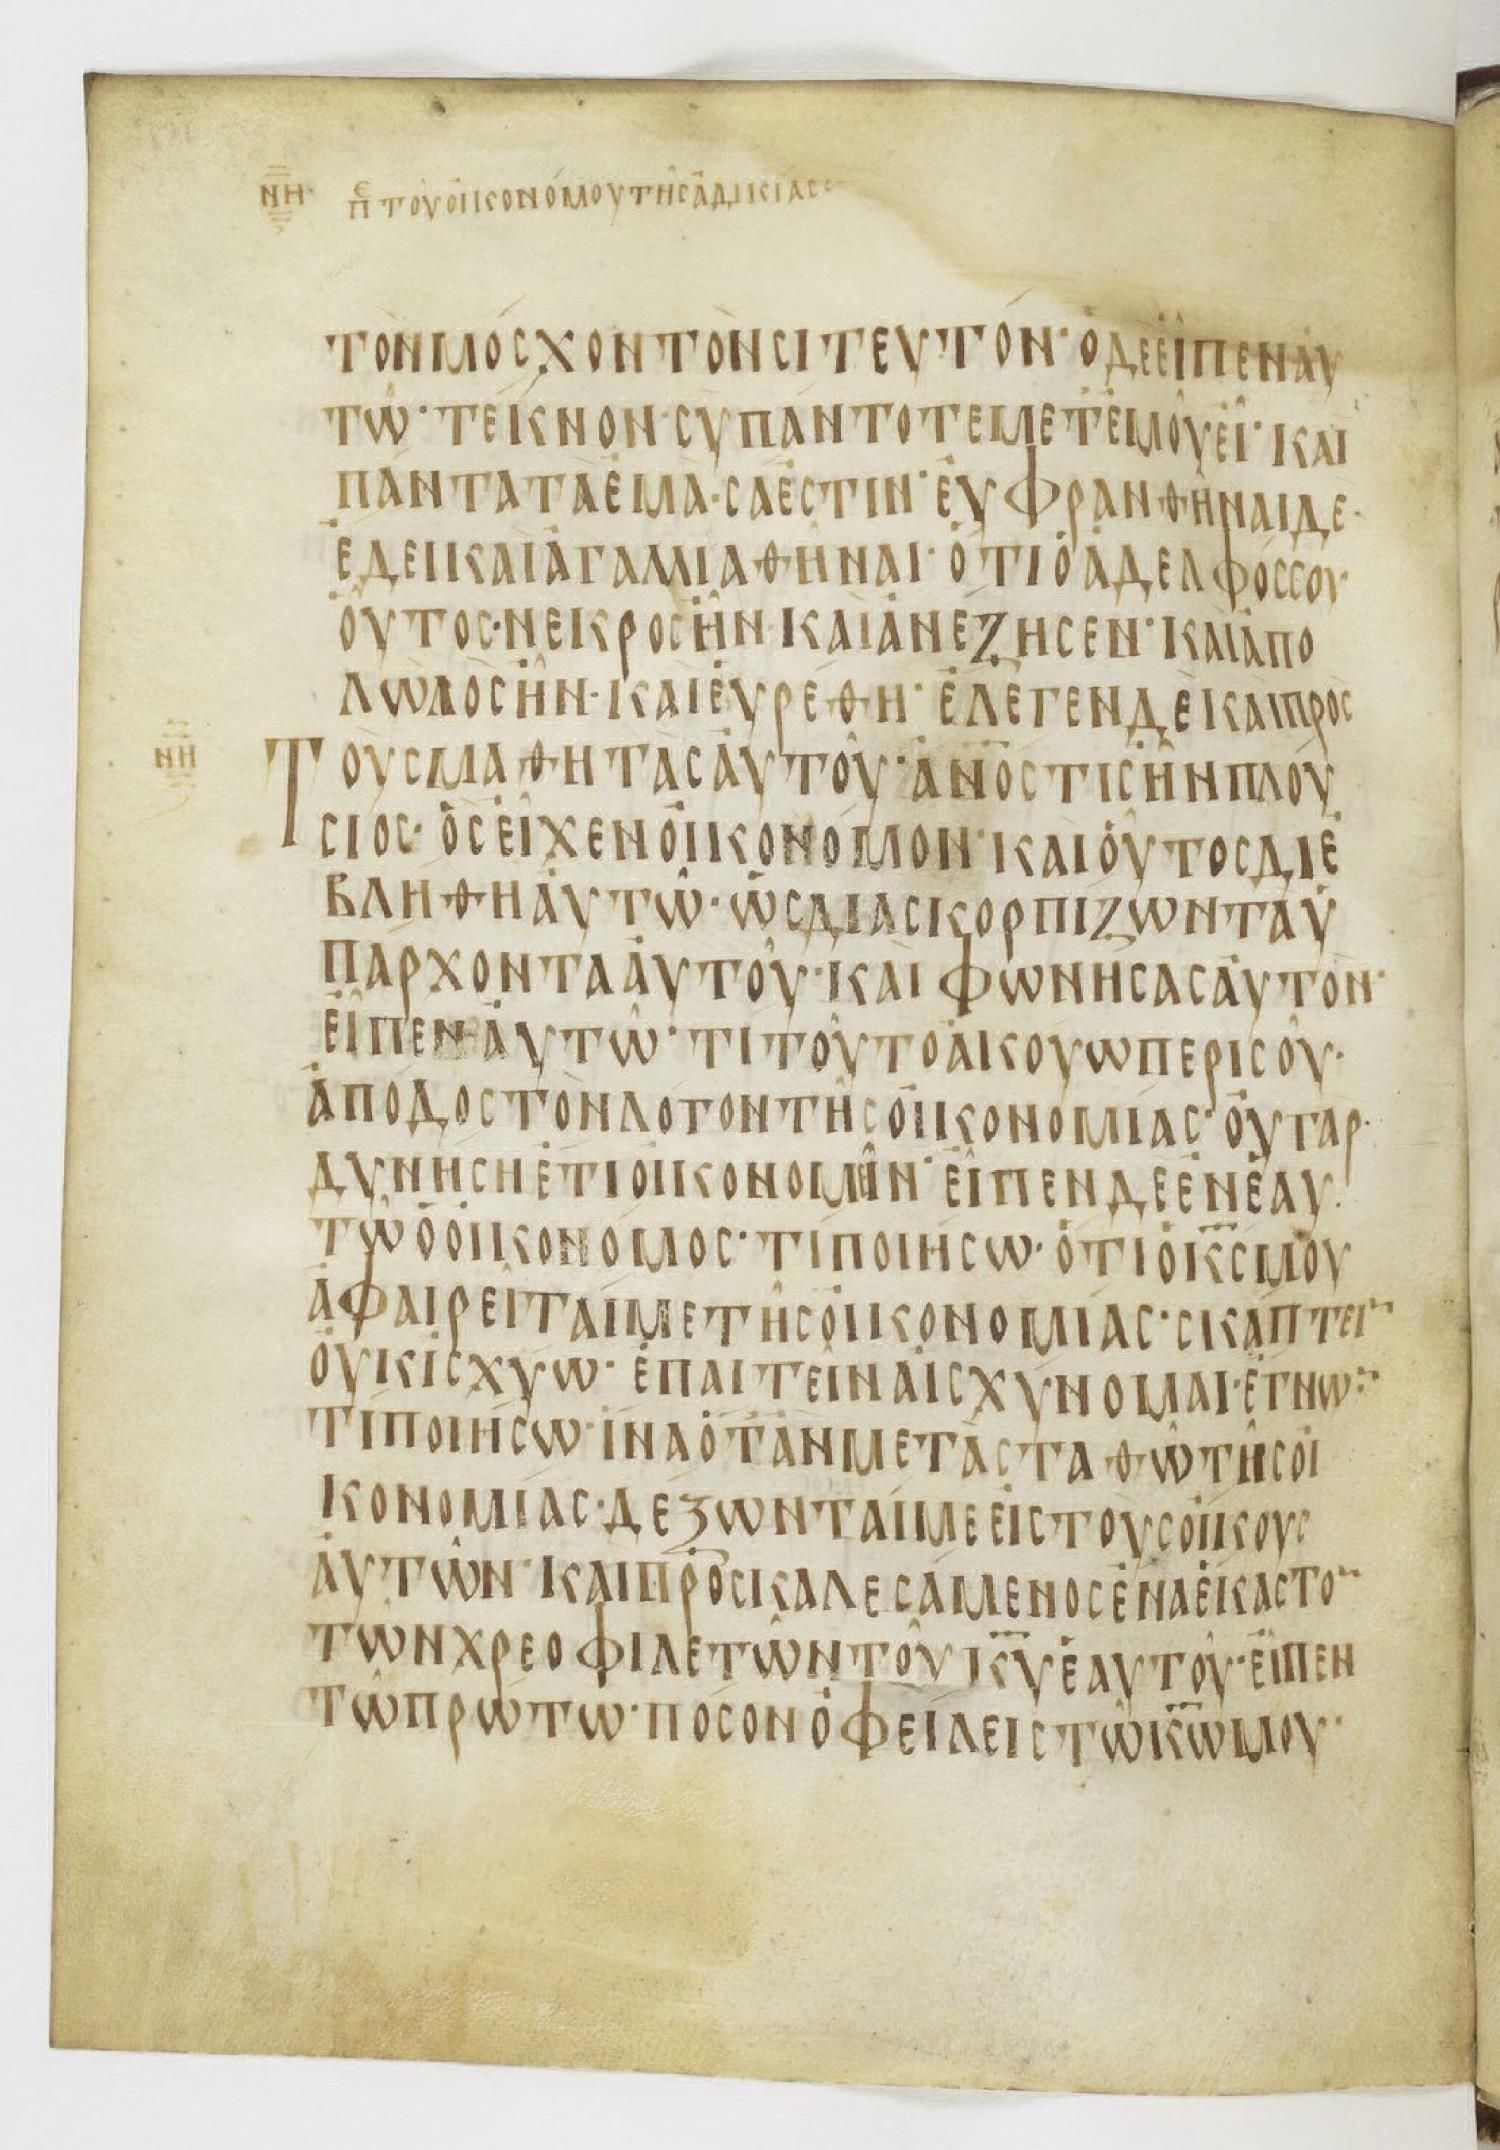 ΝΗ· ΠΕ ΤΟΥ ΟΙΚΟΝΟΜΟΥ ΤΗΣ ΑΔΙΚΙΑΣ:
ΤΟΝ ΜΟΣΧΟΝ ΤΟΝ ΣΙΤΕΥΤΟΝ· Ο ΔΕ ΕΙΠΕΝ ΑΥ
ΤΩ· ΤΕΚΝΟΝ· ΣΥ ΠΑΝΤΟΤΕ ΜΕΤ ΕΜΟΥ ΕΙ· ΚΑΙ
ΠΑΝΤΑ ΤΑ ΕΜΑ· ΣΑ ΕΣΤΙΝ· ΕΥΦΡΑΝΘΗΝΑΙ ΔΕ·
ΕΔΕΙ ΚΑΙ ΑΓΑΛΛΙΑΘΗΝΑΙ· ΟΤΙ Ο ΑΔΕΛΦΟΣ ΣΟΥ
ΟΥΤΟΣ· ΝΕΚΡΟΣ ΗΝ· ΚΑΙ ΑΝΕΖΗΣΕΝ· ΚΑΙ ΑΠΟ
ΛΩΛΟΣ ΗΝ· ΚΑΙ ΕΥΡΕΘΗ· ΕΛΕΓΕΝ ΔΕ ΚΑΙ ΠΡΟΣ
ΝΗ ΤΟΥΣ ΜΑΘΗΤΑΣ ΑΥΤΟΥ· Α̅Ν̅Ο̅Σ ΤΙΣ ΗΝ ΠΛΟΥ
ΣΙΟΣ· ΟΣ ΕΙΧΕΝ ΟΙΚΟΝΟΜΟΝ· ΚΑΙ ΟΥΤΟΣ ΔΙΕ
ΒΛΗΘΗ ΑΥΤΩ· ΩΣ ΔΙΑΣΚΟΡΠΙΖΩΝ ΤΑ Υ
ΠΑΡΧΟΝΤΑ ΑΥΤΟΥ· ΚΑΙ ΦΩΝΗΣΑΣ ΑΥΤΟΝ·
ΕΙΠΕΝ ΑΥΤΩ· ΤΙ ΤΟΥΤΟ ΑΚΟΥΩ ΠΕΡΙ ΣΟΥ·
ΑΠΟΔΟΣ ΤΟΝ ΛΟΓΟΝ ΤΗΣ ΟΙΚΟΝΟΜΙΑΣ· ΟΥ ΓΑΡ·
ΔΥΝΗΣΗ ΕΤΙ ΟΙΚΟΝΟΜΕΙΝ· ΕΙΠΕΝ ΔΕ ΕΝ ΕΑΥ
ΤΩ Ο ΟΙΚΟΝΟΜΟΣ· ΤΙ ΠΟΙΗΣΩ· ΟΤΙ Ο Κ̅Σ ΜΟΥ
ΑΦΑΙΡΕΙΤΑΙ ΜΕ ΤΗΣ ΟΙΚΟΝΟΜΙΑΣ· ΣΚΑΠΤΕΙ¯
ΟΥΚ ΙΣΧΥΩ· ΕΠΑΙΤΕΙΝ ΑΙΣΧΥΝΟΜΑΙ· ΕΓΝΩ¯
ΤΙ ΠΟΙΗΣΩ· ΙΝΑ ΟΤΑΝ ΜΕΤΑΣΤΑΘΩ ΤΗΣ ΟΙ
ΚΟΝΟΜΙΑΣ· ΔΕΞΩΝΤΑΙ ΜΕ ΕΙΣ ΤΟΥΣ ΟΙΚΟΥΣ
ΑΥΤΩΝ· ΚΑΙ ΠΡΟΣΚΑΛΕΣΑΜΕΝΟΣ ΕΝΑ ΕΚΑΣΤΟ¯
ΤΩΝ ΧΡΕΟΦΙΛΕΤΩΝ ΤΟΥ Κ̅Υ ΕΑΥΤΟΥ· ΕΙΠΕΝ
ΤΩ ΠΡΩΤΩ· ΠΟΣΟΝ ΟΦΕΙΛΕΙΣ ΤΩ Κ̅Ω ΜΟΥ·